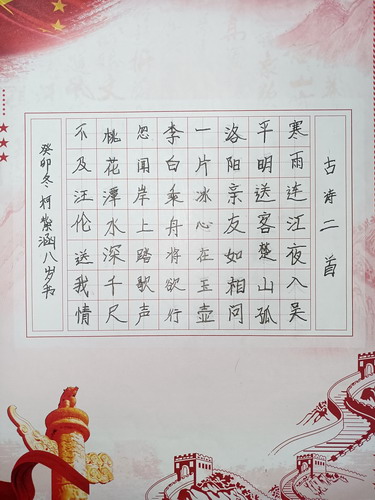 古诗二首
寒雨连江夜入吴
平明送客楚山孤
洛阳亲友如相问
一片冰心在玉壶
李白乘舟将欲行
忽闻岸上踏歌声
桃花潭水深千尺
不及汪伦送我情
癸卯冬柯紫涵八岁书